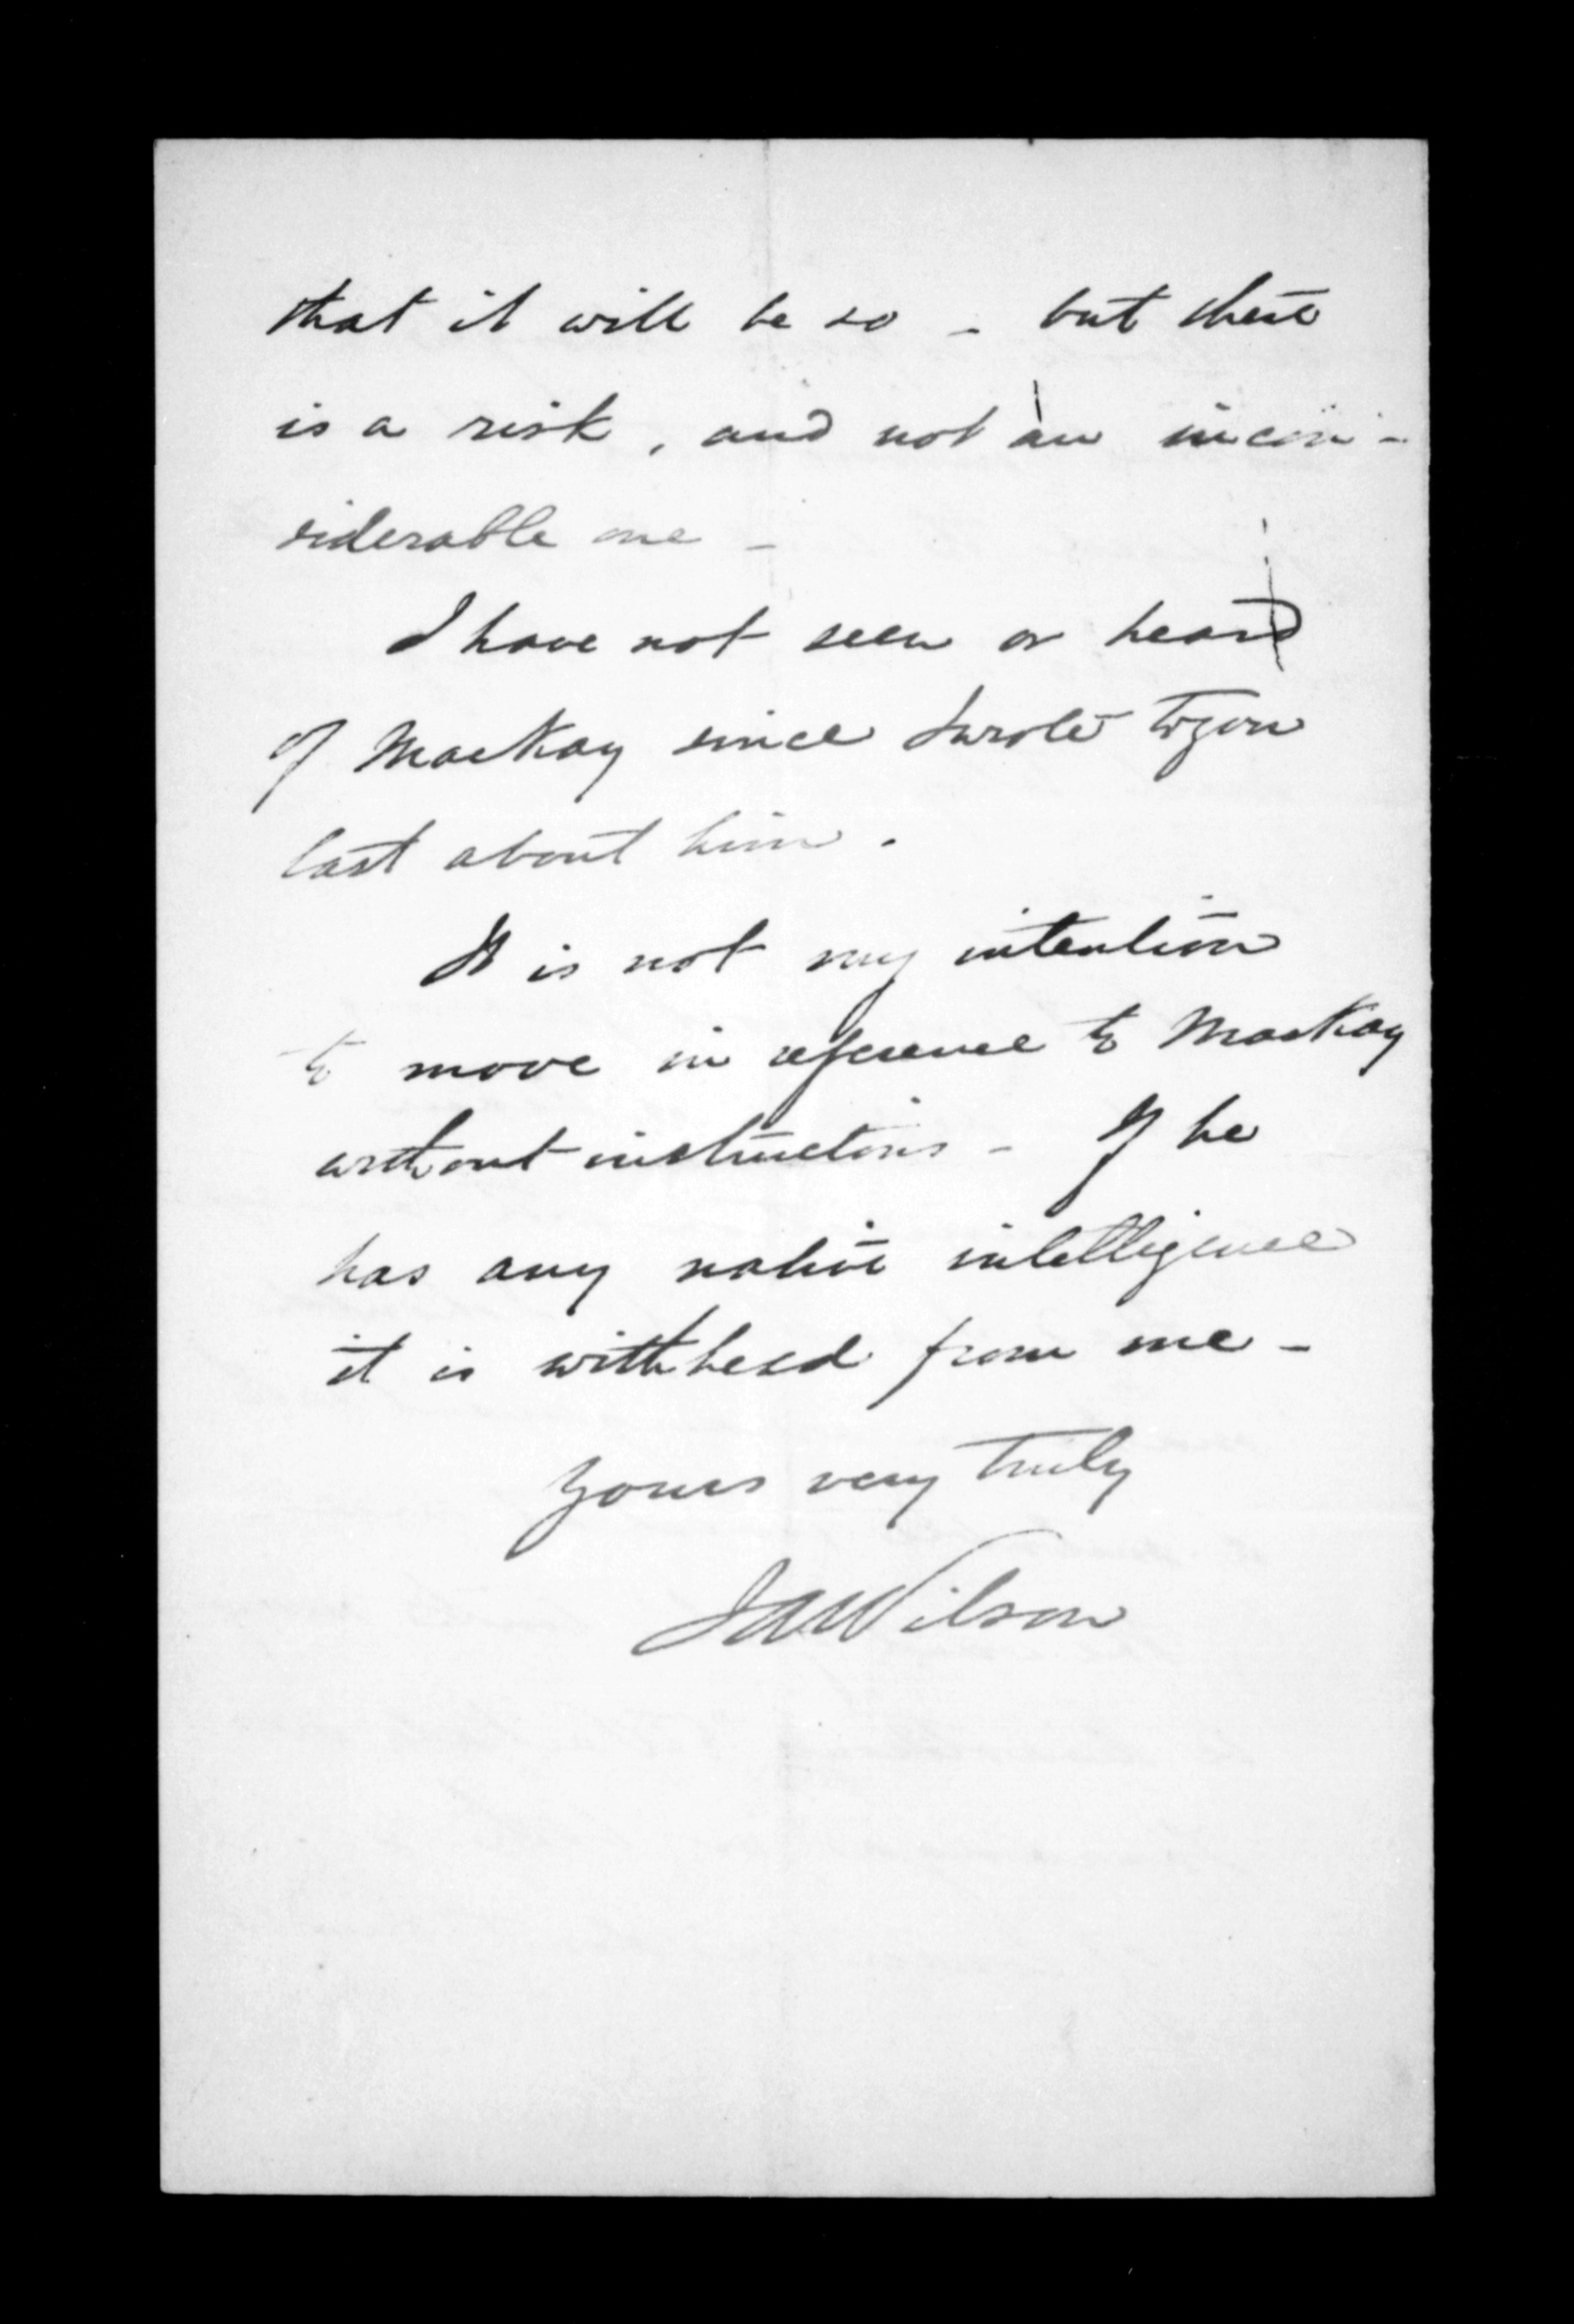 that it will be so - but there
is a risk, and not an incon-
siderable one -
I have not seen or heard
of MacKay since I wrote to you
last about him.
It is not my intention
to move in reference to MacKay
without instructions - If he
has any native intelligence
it is withheld from me -
Yours very truly
JAWilson